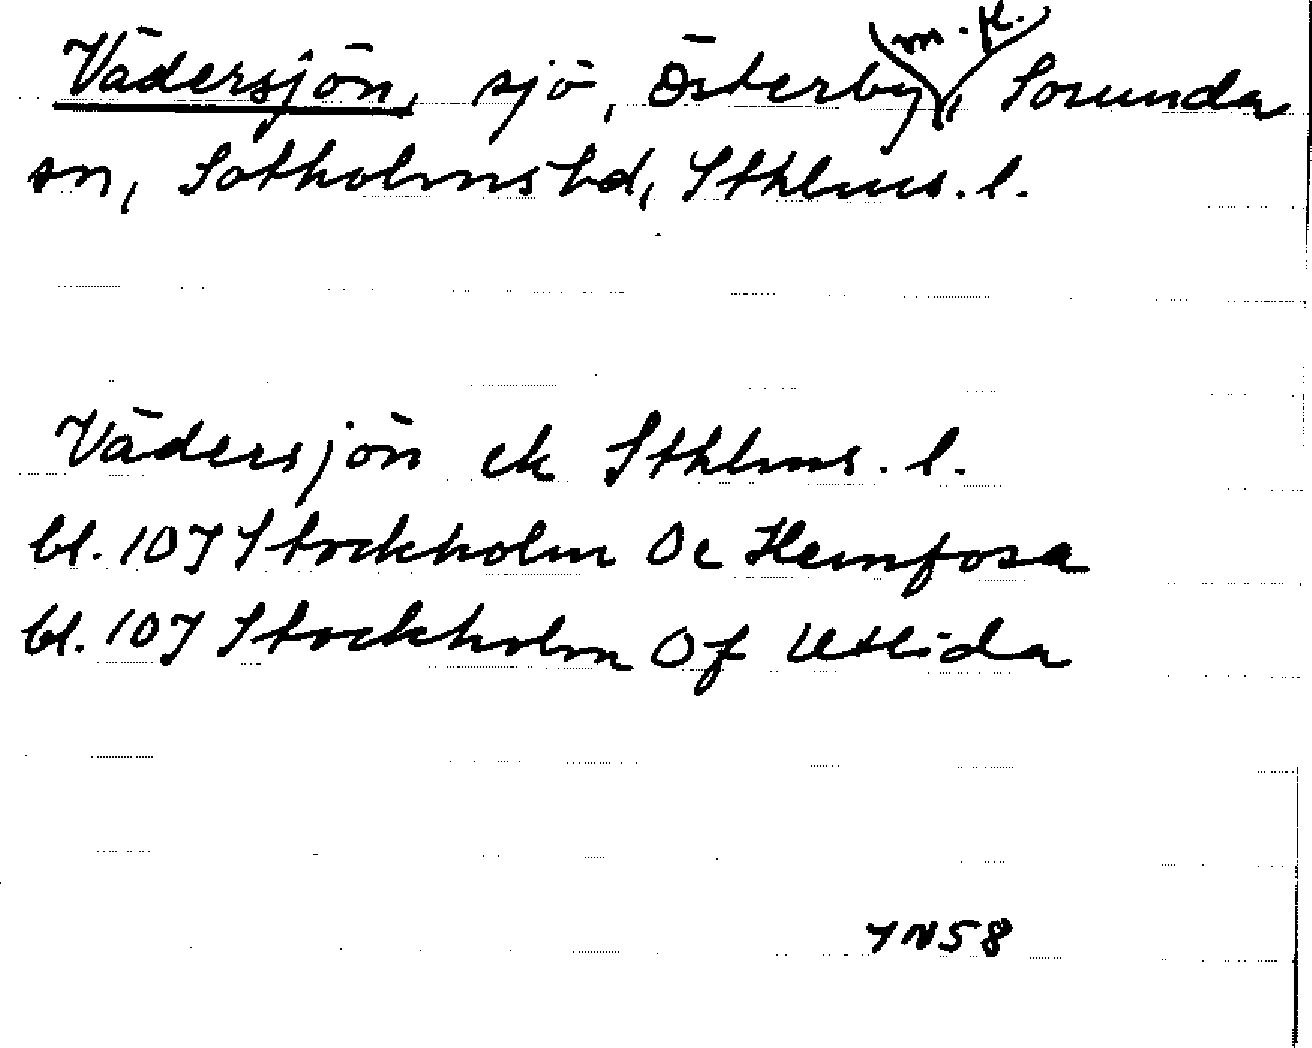 Vädersjön, sjö, Österby m.fl., Sorunda
sn, Sotholms hd, Sthlms. l.
Vädersjön ek Sthlms. l.
bl. 107 Stockholm Oe Hemfosa
bl. 107 Stockholm Of Utlida
YN58